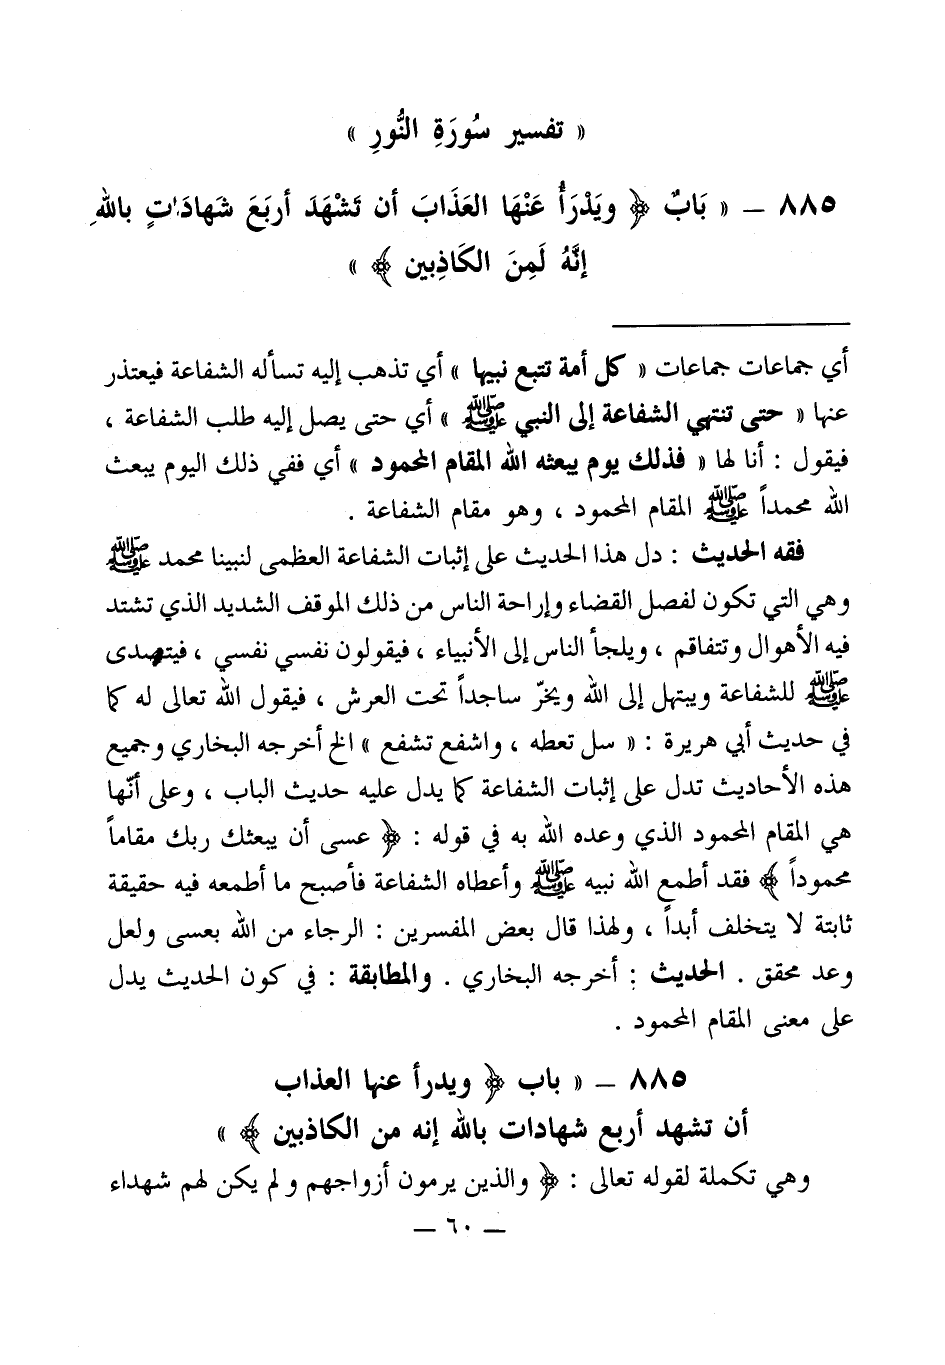 « تفسير سُورَةِ النُّورِ »
٨٨٥ – « بَابٌ ﴿ ويَدْرَأُ عَنْهَا العَذَابَ أن تَشْهَدَ أربَعَ شَهادَاتٍ باللهِ
إنَّهُ لَمِنَ الكَاذِبين ﴾ »
أي جماعات جماعات « كل أمة تتبع نبيها » أي تذهب إليه تسأله الشفاعة فيعتذر
عنها « حتى تنتهي الشفاعة إلى النبي ﷺ » أي حتى يصل إليه طلب الشفاعة ،
فيقول : أنا لها « فذلك يوم يبعثه الله المقام المحمود » أي ففي ذلك اليوم يبعث
الله محمداً ﷺ المقام المحمود ، وهو مقام الشفاعة .
فقه الحديث : دل هذا الحديث على إثبات الشفاعة العظمى لنبينا محمد ﷺ
وهي التي تكون لفصل القضاء وإراحة الناس من ذلك الموقف الشديد الذي تشتد
فيه الأهوال وتتفاقم ، ويلجأ الناس إلى الأنبياء ، فيقولون نفسي نفسي ، فيتصدى
ﷺ للشفاعة ويبتهل إلى الله ويخرّ ساجداً تحت العرش ، فيقول الله تعالى له كما
في حديث أبي هريرة : « سل تعطه ، واشفع تشفع » الخ أخرجه البخاري وجميع
هذه الأحاديث تدل على إثبات الشفاعة كما يدل عليه حديث الباب ، وعلى أنّها
هي المقام المحمود الذي وعده الله به في قوله : ﴿ عسى أن يبعثك ربك مقاماً
محموداً ﴾ فقد أطمع الله نبيه ﷺ وأعطاه الشفاعة فأصبح ما أطمعه فيه حقيقة
ثابتة لا يتخلف أبداً ، ولهذا قال بعض المفسرين : الرجاء من الله بعسى ولعل
وعد محقق . الحديث : أخرجه البخاري . والمطابقة : في كون الحديث يدل
على معنى المقام المحمود .
٨٨٥ – « باب ﴿ ويدرأ عنها العذاب
أن تشهد أربع شهادات بالله إنه من الكاذبين ﴾ »
وهي تكملة لقوله تعالى : ﴿ والذين يرمون أزواجهم ولم يكن لهم شهداء
– ٦٠ –